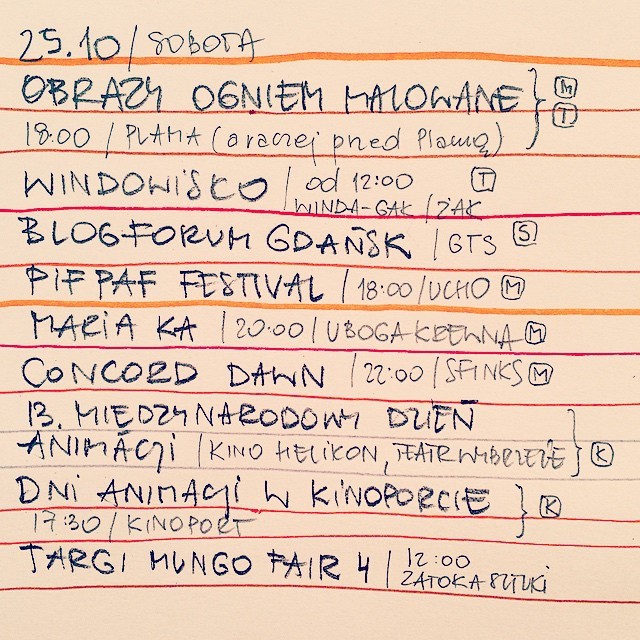 25.10 / SOBOTA
OBRAZY OGNIEM MALOWANE } M
T
18:00 / PLAMA (a raczej przed Plamą)
WINDOWISKO / od 12:00 T
WINDA-GAK / ŻAK
BLOGFORUM GDAŃSK / GTS S
PIFPAF FESTIVAL / 18:00 / UCHO M
MARIA KA / 20:00 / UBOGA KREWNA M
CONCORD DAWN / 22:00 / SFINKS M
13. MIĘDZYNARODOWY DZIEŃ
ANIMACJI / KINO HELIKON, TEATR WYBRZEŻE } K
DNI ANIMACJI W KINOPORCIE } K
17:30 / KINOPORT
TARGI MUNGO FAIR 4 / 12:00
ZATOKA SZTUKI